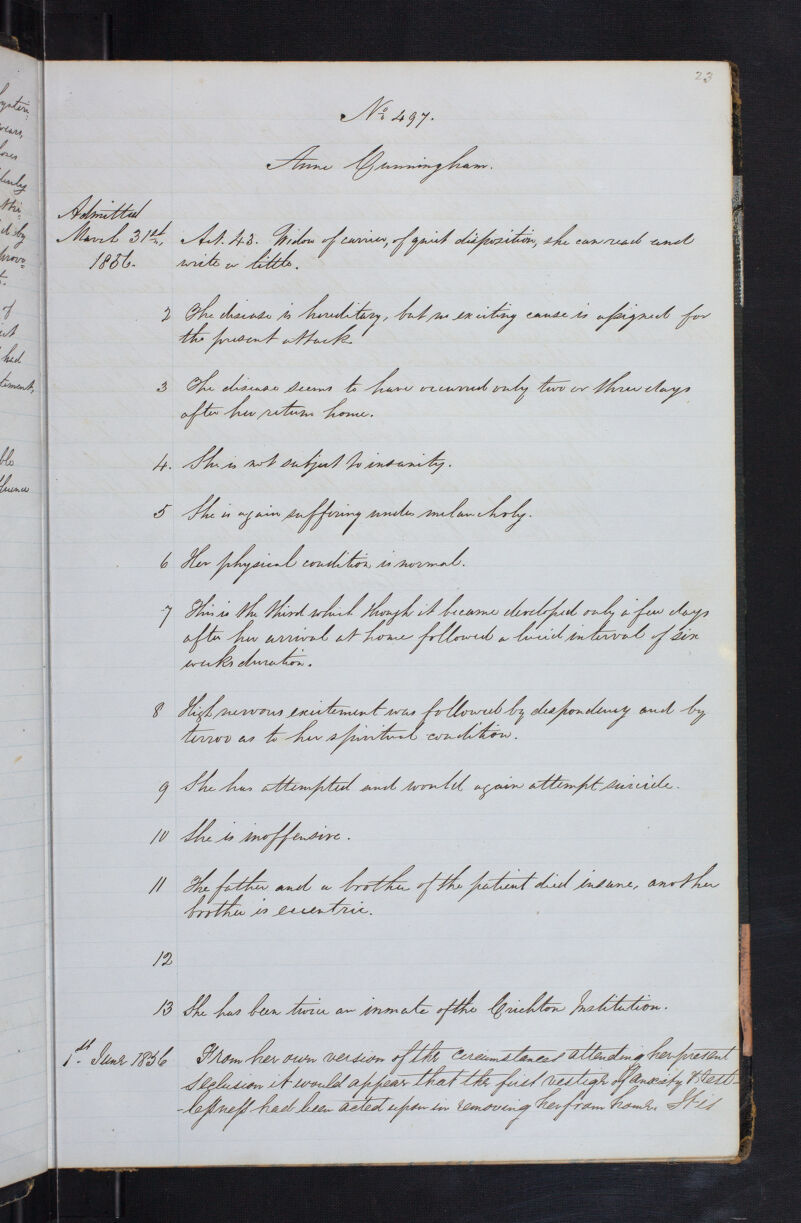 23
No 497.
Anne Cunningham.
Admitted
March 31st,
1856.
Aet. 43. Widow of carrier, of quiet disposition, she can read and
write a little.
2 The disease is hereditary, but no exciting cause is assigned for
the present attack
3 The disease seems to have occurred only two or three days
after her return home.
4. She is not subject to insanity.
5 She is again suffering under melancholy.
6 Her physical condition is normal.
7 This is the third which though it became developed only a few days
after her arrival at home followed a lucid interval of six
weeks duration.
8 High nervous excitement was followed by despondency and by
terror as to her spiritual condition.
9 She has attempted and would again attempt suicide.
10 She is inoffensive.
11 The father and a brother of the patient died insane, another
brother is eccentric.
12
13 She has been twice an inmate of the Crichton Institution.
1st June 1856 From her own version of the circumstances attending her present
seclusion it would appear that the first vestige of anxiety & rest-
-lessness had been acted upon in removing her from home. It is